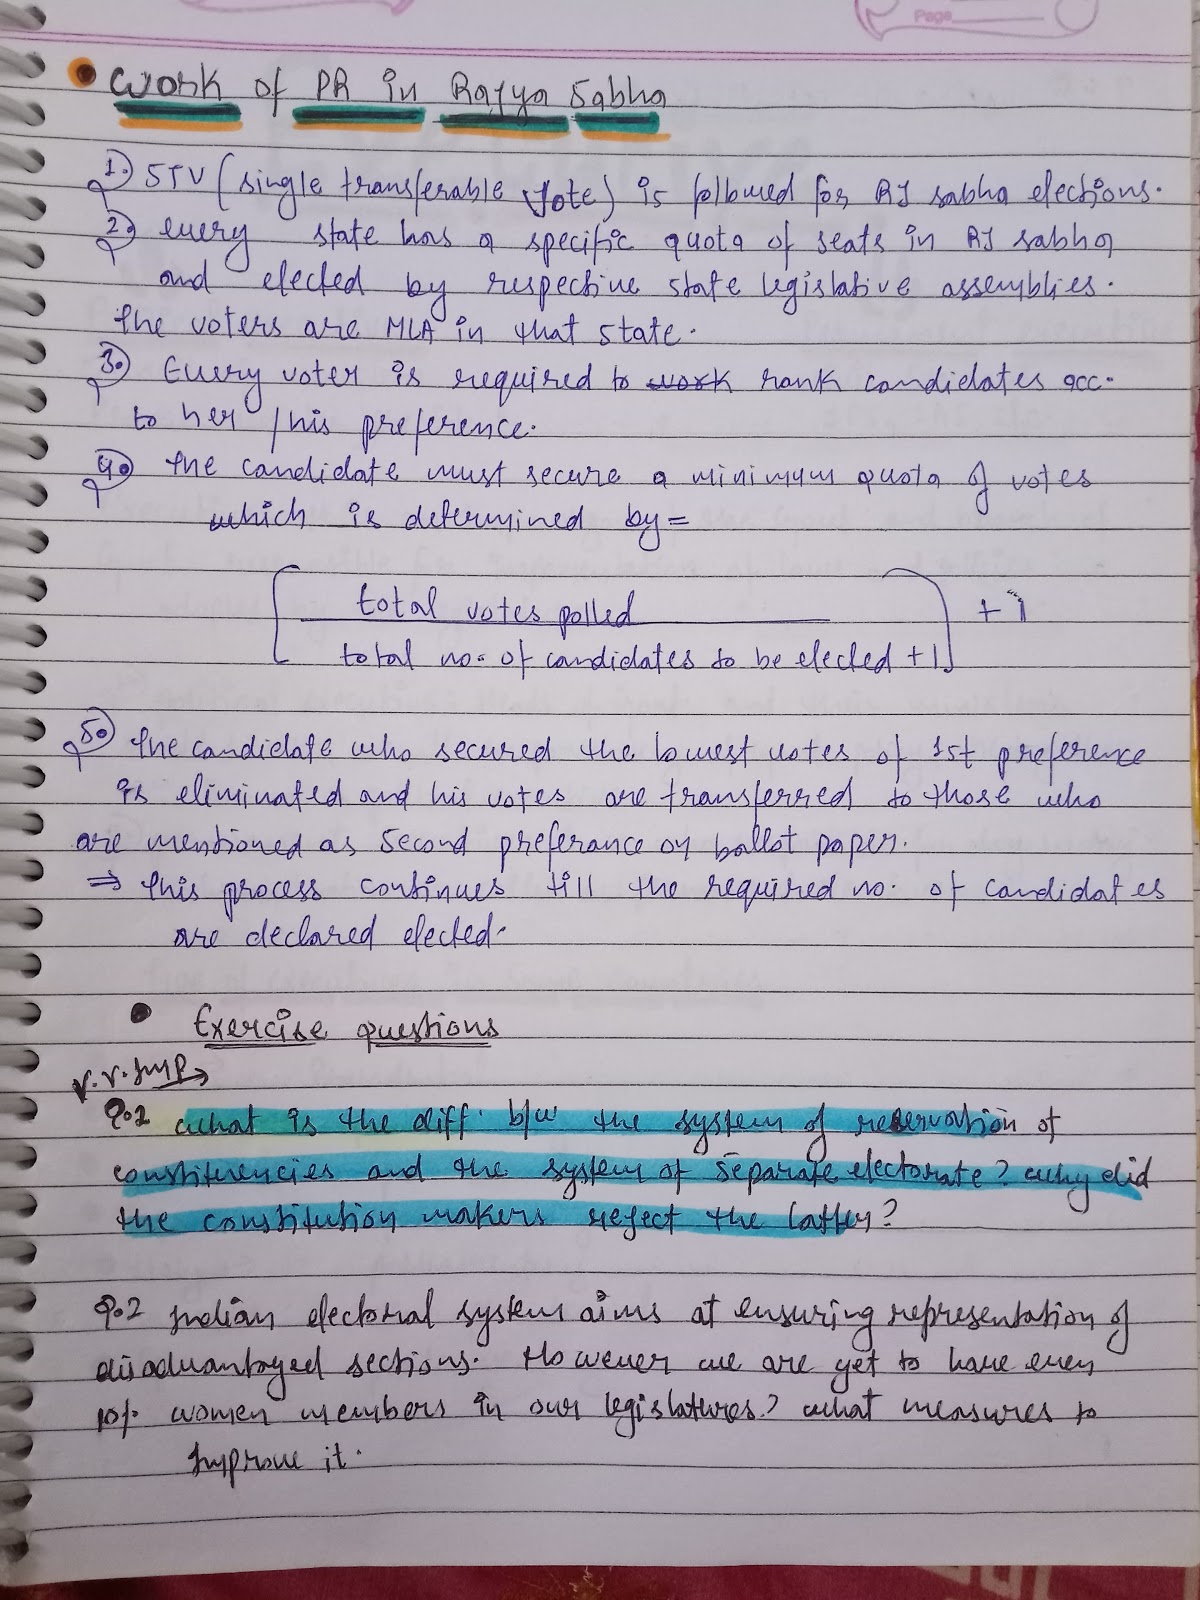 Page
Work of PR in Rajya Sabha
1. STV (single transferable vote) is followed for RJ sabha elections.
2. every state has a specific quota of seats in RJ sabha
and elected by respective state legislative assemblies.
the voters are MLA in that state.
3. Every voter is required to work rank candidates acc.
to her / his preference.
4. the candidate must secure a minimum quota of votes
which is determined by =
total votes polled
+ 1
total no. of candidates to be elected + 1
5. the candidate who secured the lowest votes of 1st preference
is eliminated and his votes are transferred to those who
are mentioned as second preferance on ballot paper.
⇒ this process continues till the required no. of candidates
are declared elected.
• Exercise questions
V.V.Imp →
Q.1 what is the diff. b/w the system of reservation of
constituencies and the system of separate electorate? why did
the constitution makers reject the latter?
Q.2 Indian electoral system aims at ensuring representation of
disadvantaged sections. However we are yet to have even
10%. women members in our legislatures? what measures to
improve it.